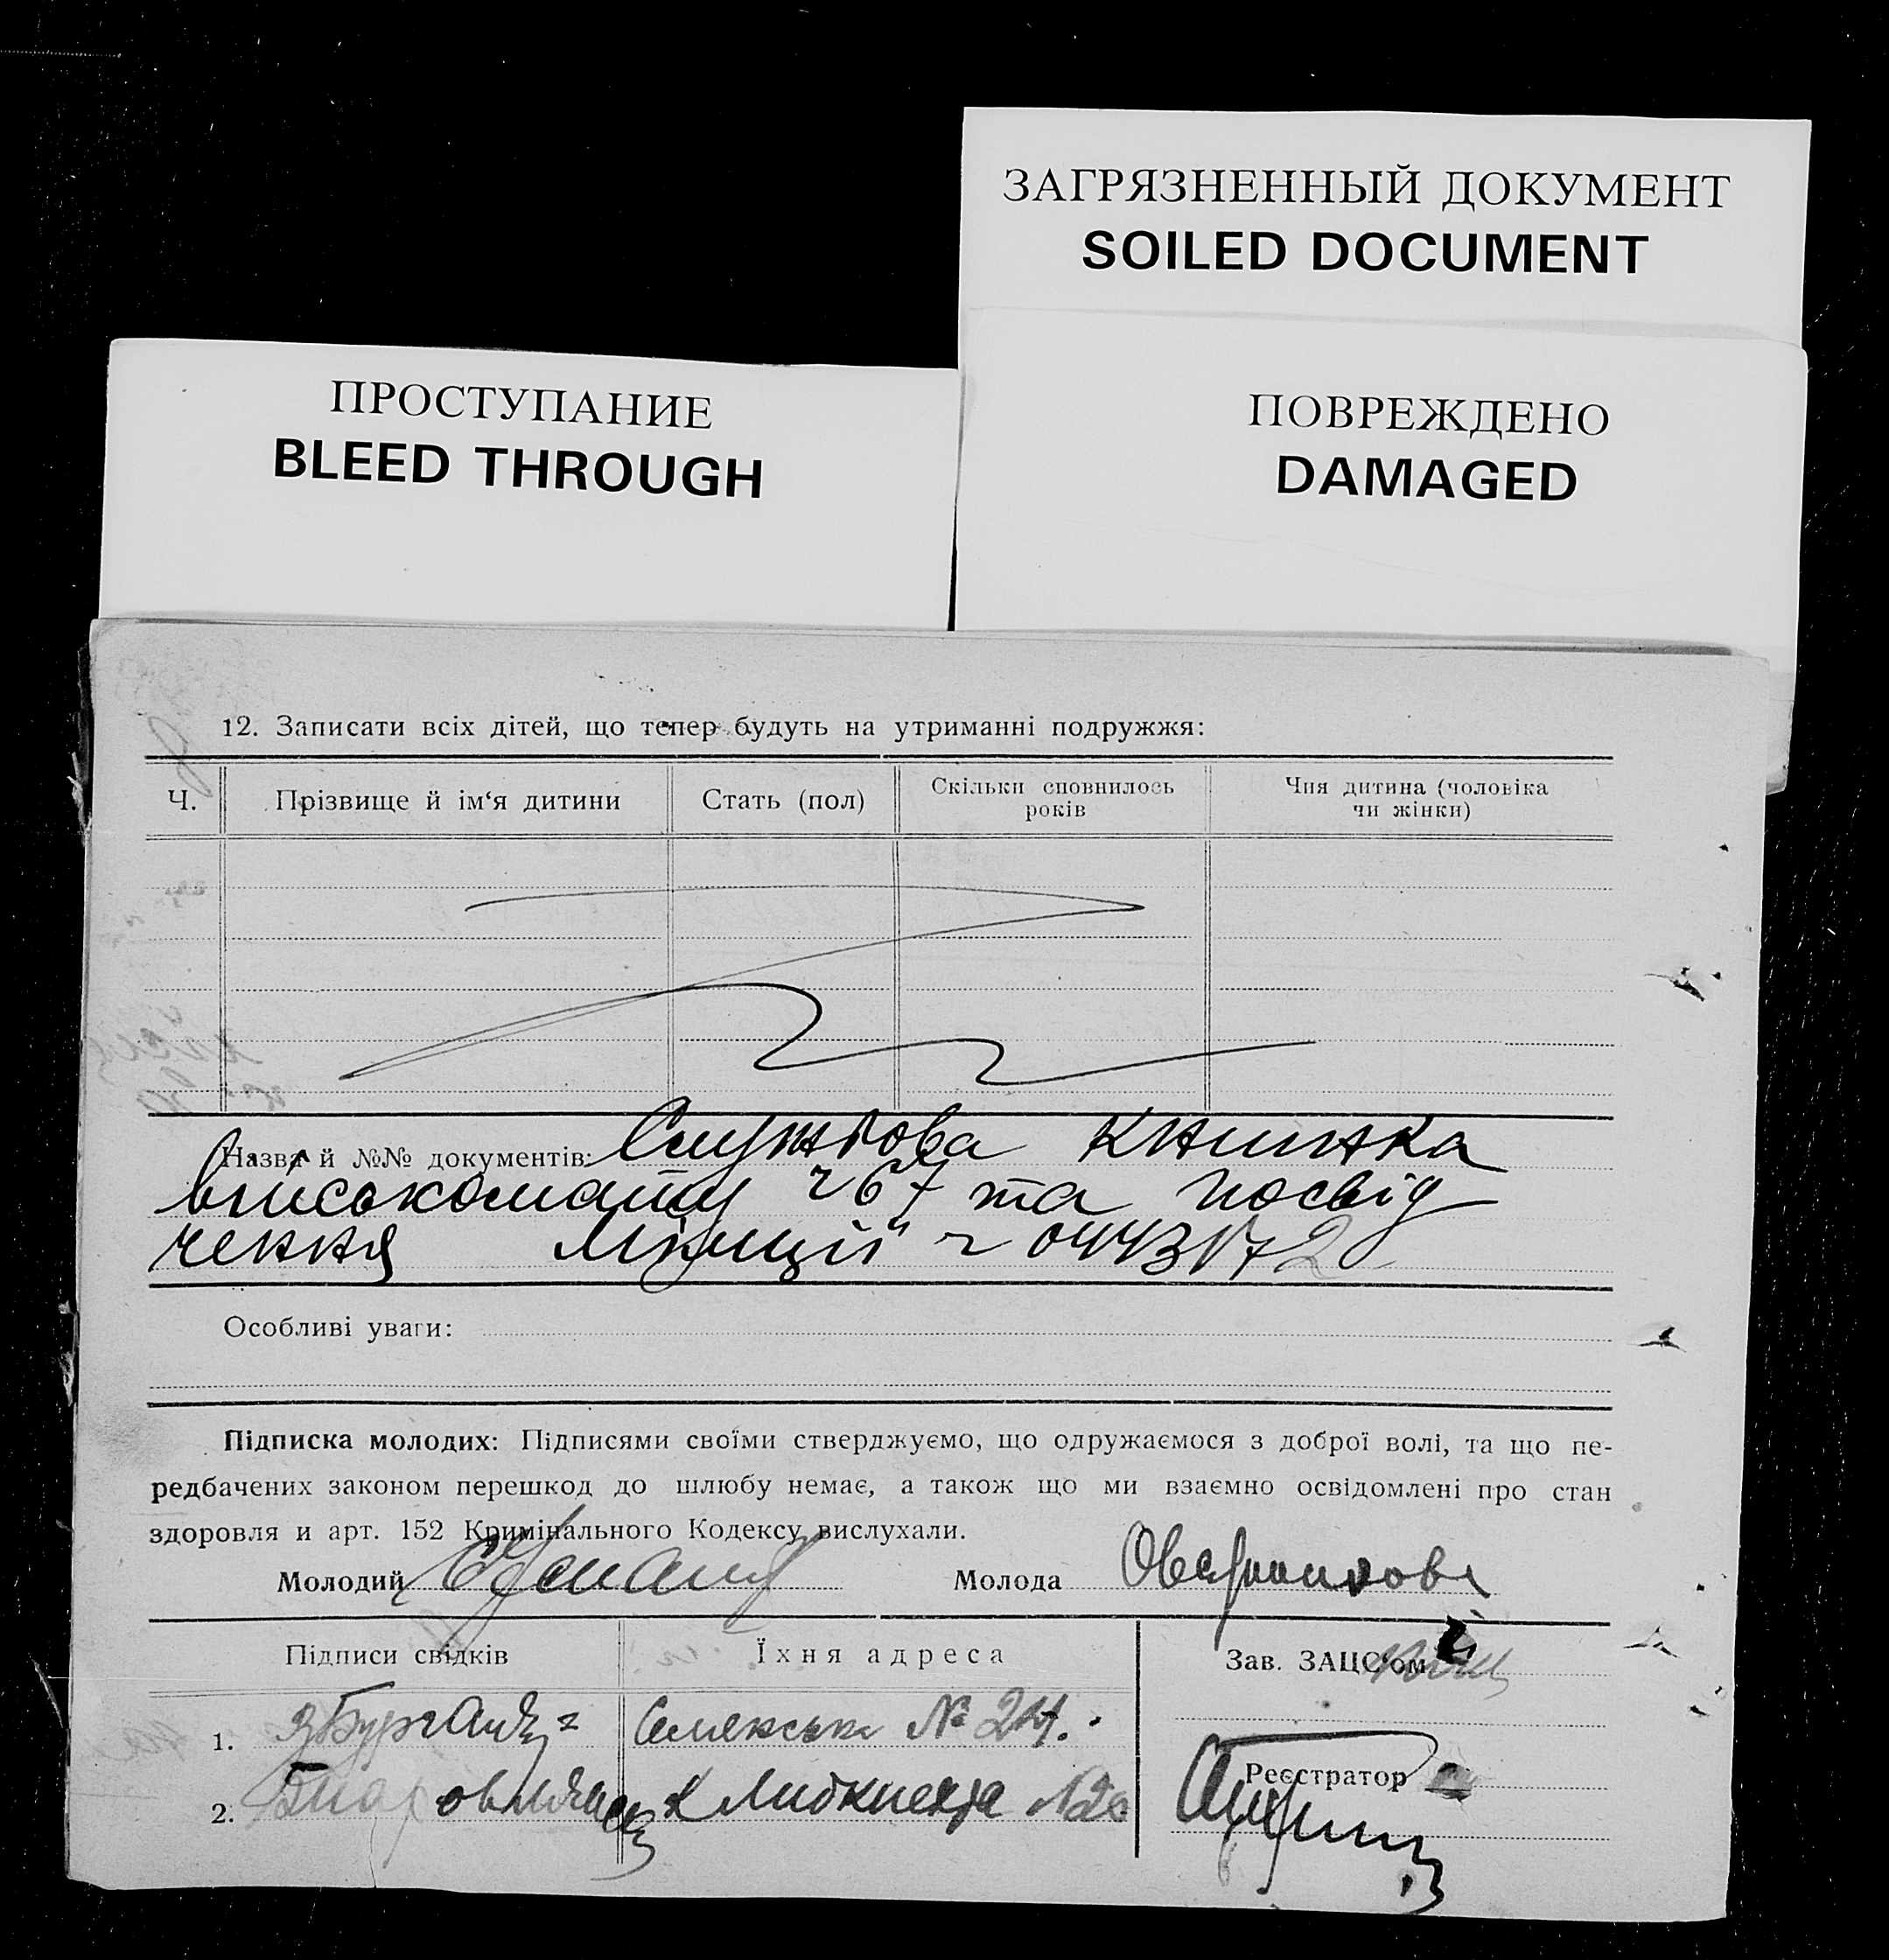 ЗАГРЯЗНЕННЫЙ ДОКУМЕНТ
SOILED DOCUMENT
ПРОСТУПАНИЕ
BLEED THROUGH
ПОВРЕЖДЕНО
DAMAGED
12. Записати всіх дітей, що тепер будуть на утриманні подружжя:
Ч.
Прізвище й ім‘я дитини
Стать (пол)
Скільки сповнилось
років
Чия дитина (чоловіка
чи жінки)
Назва й №№ документів: Службова книжка
військомату ч 67 та посвід
чення міліції ч 0443172
Особливі уваги:
Підписка молодих: Підписями своїми стверджуємо, що одружаємося з доброї волі, та що пе-
редбачених законом перешкод до шлюбу немає, а також що ми взаємно освідомлені про стан
здоровля и арт. 152 Кримінального Кодексу вислухали.
Молодий
Молода
Підписи свідків
Їхня адреса
Зав. ЗАЦС‘ом
1.
№ 24.
Реєстратор
2.
К Либкнехта